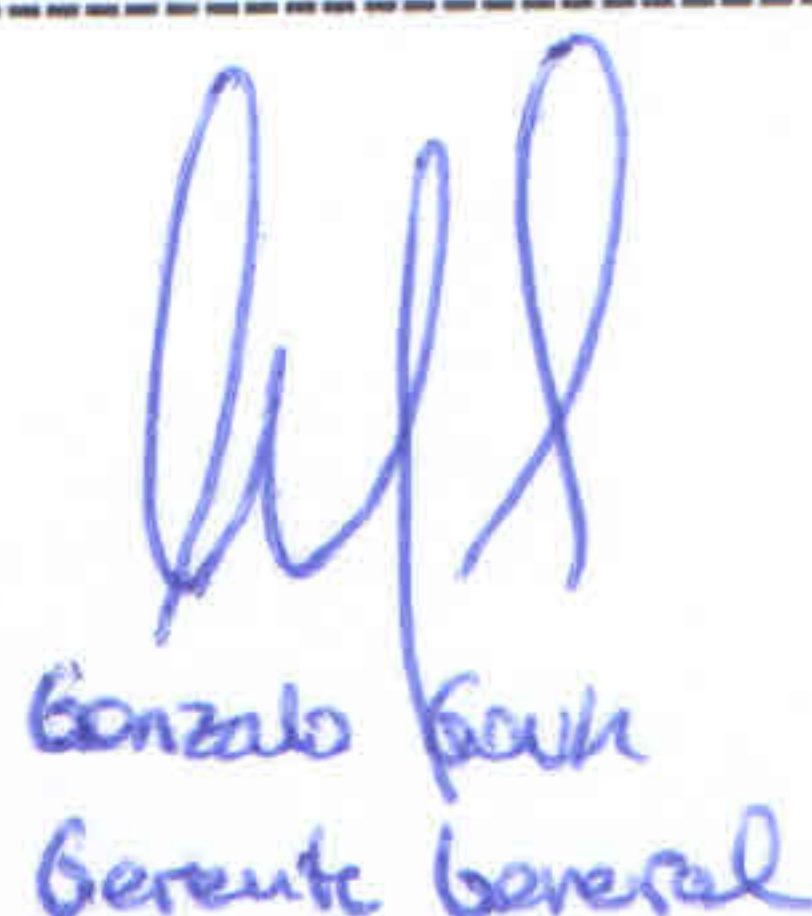 Gonzalo
Gerente General